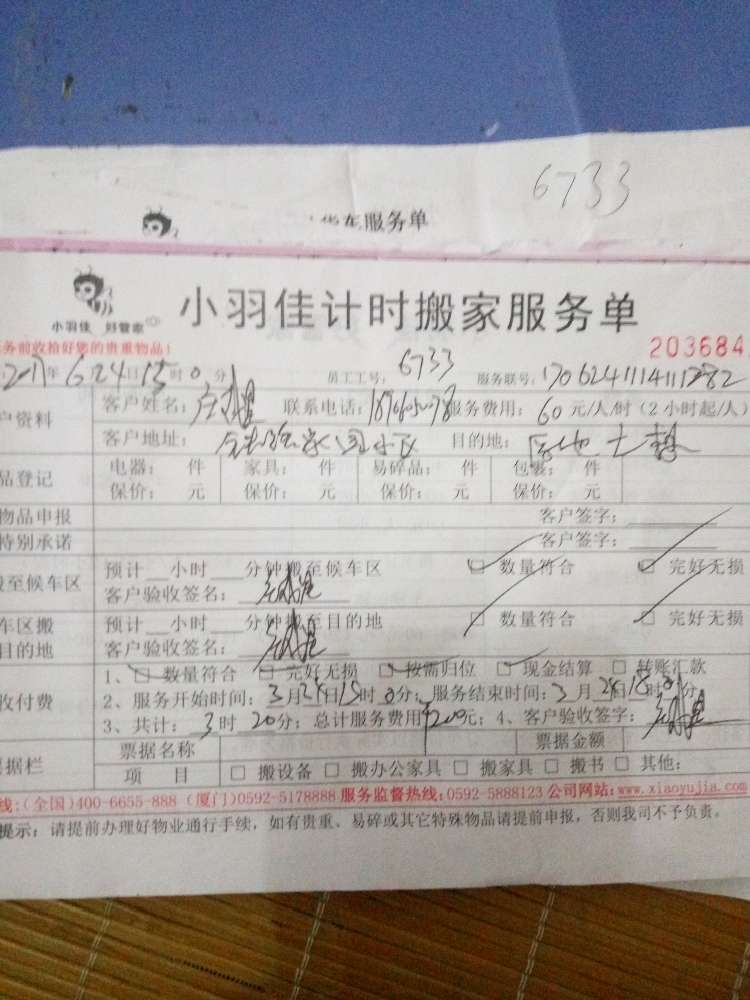 6733
车服务单
小羽佳 好管家
小羽佳计时搬家服务单
务前收拾好您的贵重物品!
203684
年6月24日15时0分 员工工号: 6733 服务联号:
户资料 客户姓名: 联系电话: 服务费用: 60元/人/时(2小时起/人)
客户地址: 目的地:
品登记 电器: 件 家具: 件 易碎品: 件 包裹: 件
保价: 元 保价: 元 保价: 元 保价: 元
物品申报 客户签字:
特别承诺 客户签字:
至候车区 预计 小时 分钟搬至候车区 数量符合 完好无损
客户验收签名:
车区搬 预计 小时 分钟搬至目的地 数量符合 完好无损
目的地 客户验收签名:
收付费 1、□数量符合 □完好无损 □按需归位 □现金结算 □转账汇款
2、服务开始时间: 月 日15时0分; 服务结束时间: 月 日18时 分
3、共计: 3时20分; 总计服务费用 200元; 4、客户验收签字:
据栏 票据名称 票据金额
项 目 □搬设备 □搬办公家具 □搬家具 □搬书 □其他:
线:(全国)400-6655-888 (厦门)0592-5178888 服务监督热线:0592-5888123 公司网站:www.xiaoyujia.com
提示: 请提前办理好物业通行手续, 如有贵重、易碎或其它特殊物品请提前申报, 否则我司不予负责。